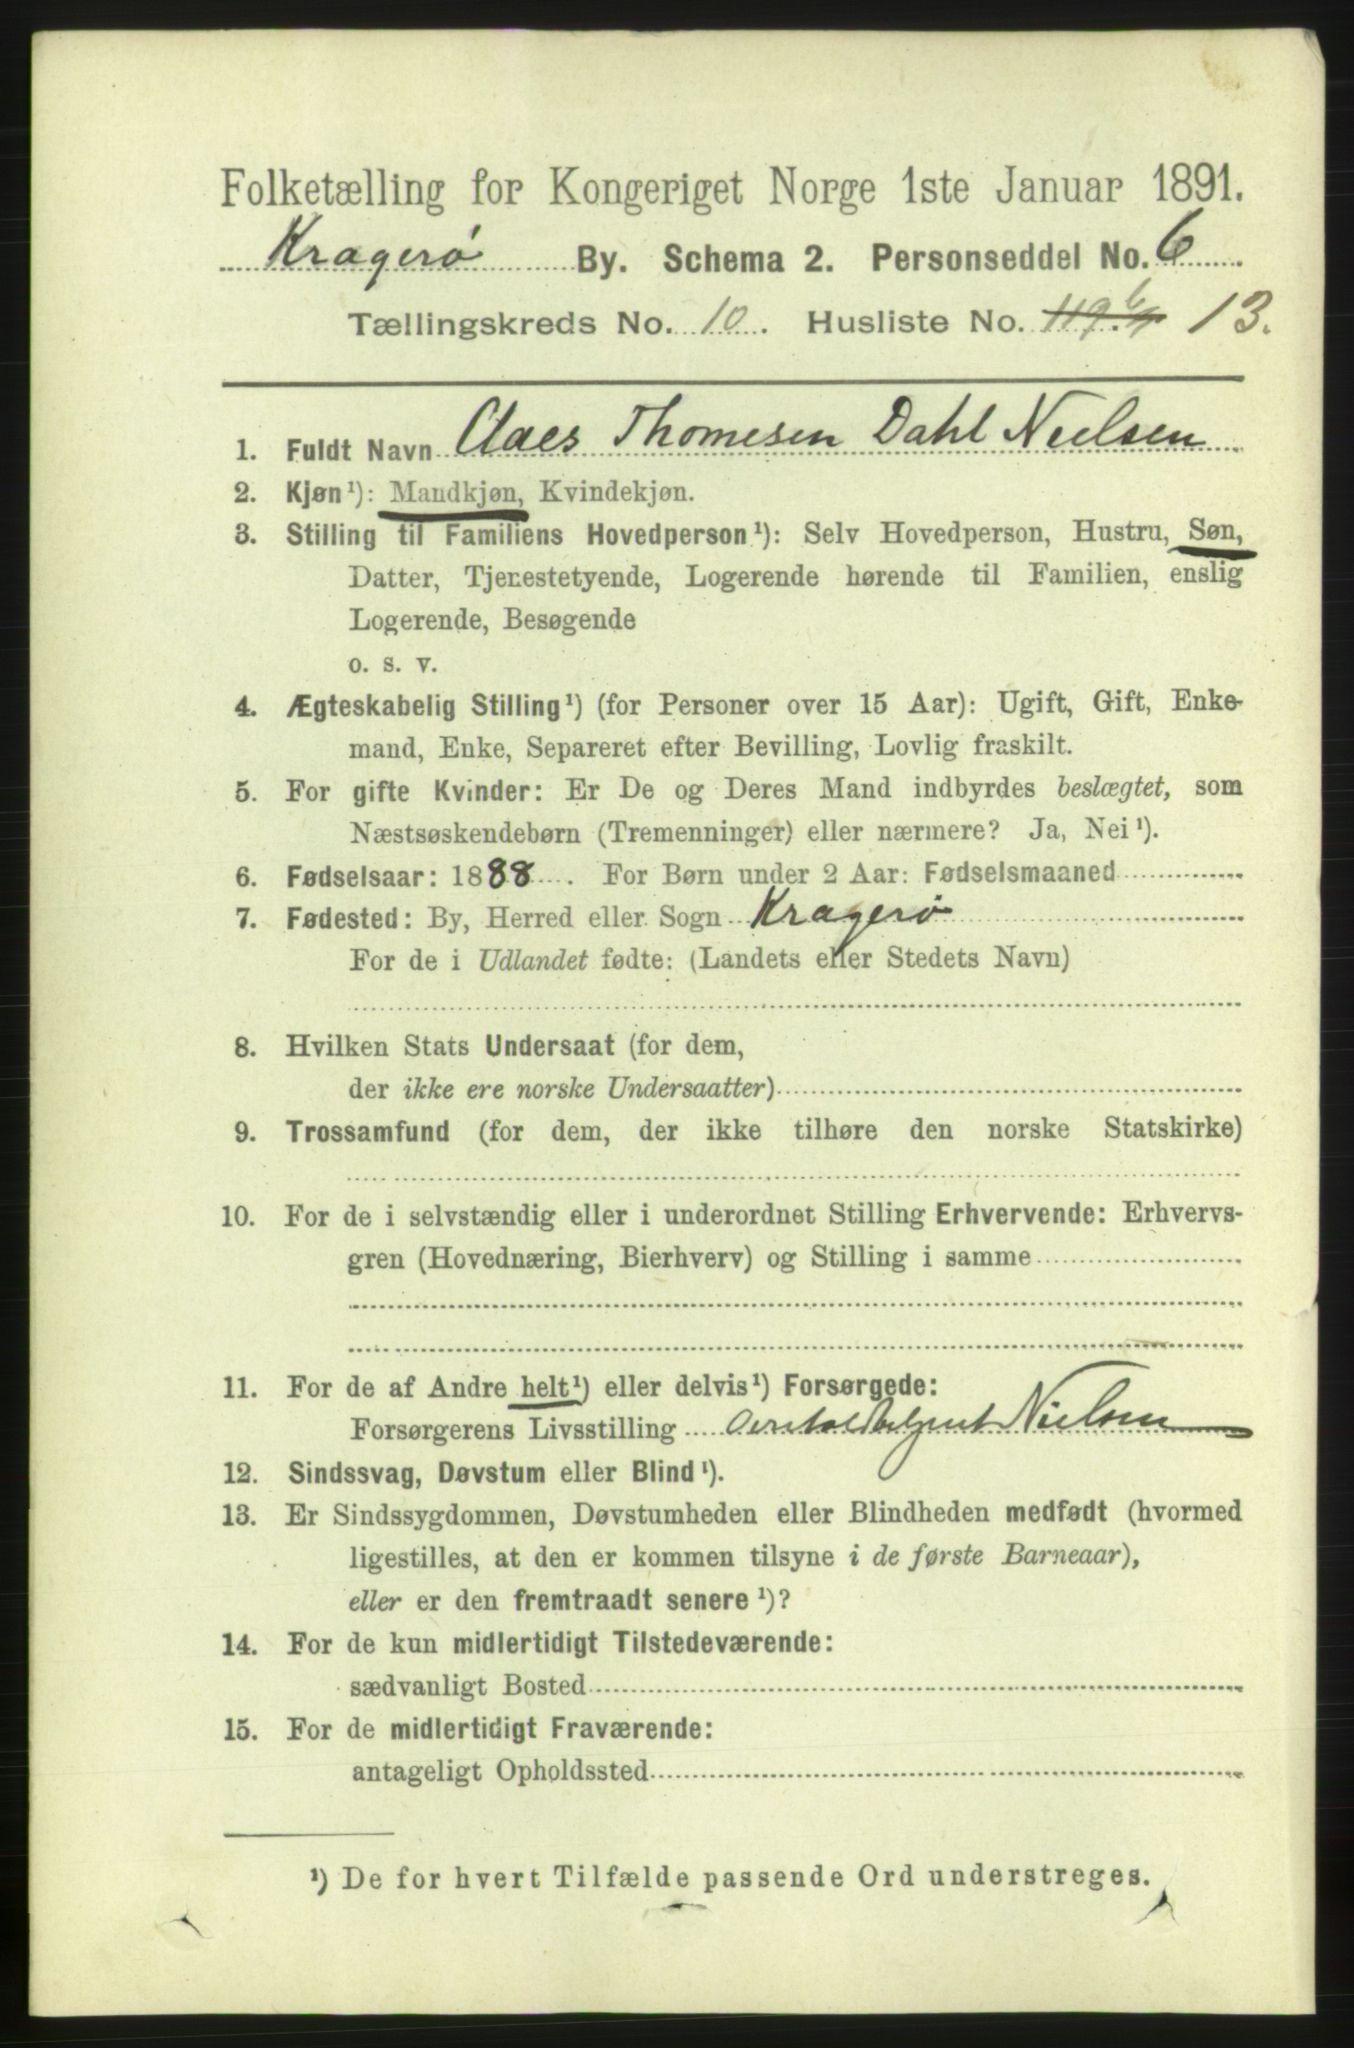 Folketælling for Kongeriget Norge 1ste Januar 1891.
Kragerø By. Schema 2. Personseddel No. 6
Tællingskreds No. 10. Husliste No. 13.
1. Fuldt Navn Claes Thomesen Dahl Nielsen
2. Kjøn¹): Mandkjøn, Kvindekjøn.
3. Stilling til Familiens Hovedperson¹): Selv Hovedperson, Hustru, Søn,
Datter, Tjenestetyende, Logerende hørende til Familien, enslig
Logerende, Besøgende
o. s. v.
4. Ægteskabelig Stilling¹) (for Personer over 15 Aar): Ugift, Gift, Enke-
mand, Enke, Separeret efter Bevilling, Lovlig fraskilt.
5. For gifte Kvinder: Er De og Deres Mand indbyrdes beslægtet, som
Næstsøskendebørn (Tremenninger) eller nærmere? Ja, Nei¹).
6. Fødselsaar: 1888. For Børn under 2 Aar: Fødselsmaaned
7. Fødested: By, Herred eller Sogn Kragerø
For de i Udlandet fødte: (Landets eller Stedets Navn)
8. Hvilken Stats Undersaat (for dem,
der ikke ere norske Undersaatter)
9. Trossamfund (for dem, der ikke tilhøre den norske Statskirke)
10. For de i selvstændig eller i underordnet Stilling Erhvervende: Erhvervs-
gren (Hovednæring, Bierhverv) og Stilling i samme
11. For de af Andre helt¹) eller delvis¹) Forsørgede:
Forsørgerens Livsstilling Nielsen
12. Sindssvag, Døvstum eller Blind¹).
13. Er Sindssygdommen, Døvstumheden eller Blindheden medfødt (hvormed
ligestilles, at den er kommen tilsyne i de første Barneaar),
eller er den fremtraadt senere¹)?
14. For de kun midlertidigt Tilstedeværende:
sædvanligt Bosted
15. For de midlertidigt Fraværende:
antageligt Opholdssted
¹) De for hvert Tilfælde passende Ord understreges.